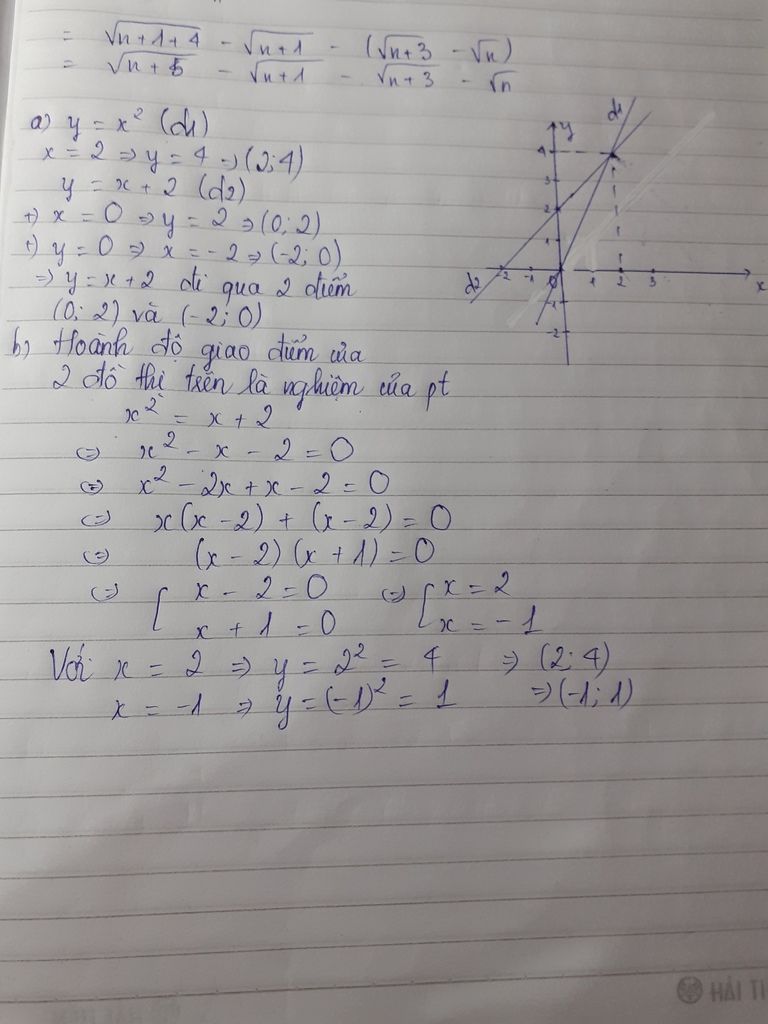 = √n+1+4 - √n+1 - (√n+3 - √n)
= √n+5 - √n+1 - √n+3 - √n
a) y = x² (d1)
x = 2 => y = 4 => (2;4)
y = x + 2 (d2)
+) x = 0 => y = 2 => (0; 2)
+) y = 0 => x = -2 => (-2; 0)
=> y = x + 2 đi qua 2 điểm
(0; 2) và (-2; 0)
d1
y
4
3
2
1
d2 -2 -1 0 1 2 3 x
-1
-2
b) Hoành độ giao điểm của
2 đồ thị trên là nghiệm của pt
x² = x + 2
<=> x² - x - 2 = 0
<=> x² - 2x + x - 2 = 0
<=> x(x - 2) + (x - 2) = 0
<=> (x - 2) (x + 1) = 0
<=> [ x - 2 = 0 <=> [ x = 2
x + 1 = 0 x = -1
Với x = 2 => y = 2² = 4 => (2; 4)
x = -1 => y = (-1)² = 1 => (-1; 1)
HẢI TI